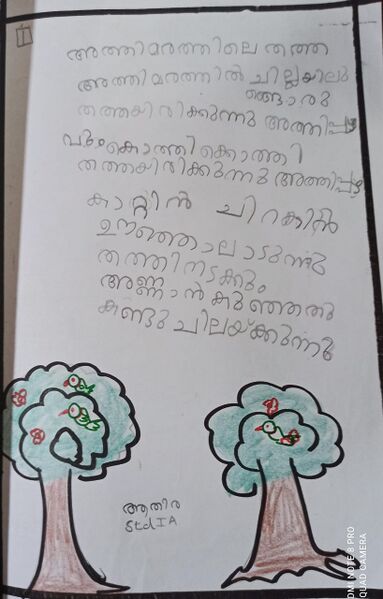 1
അത്തിമരത്തിലെ തത്ത
അത്തിമരത്തിൽ ചില്ലയിലു
ങ്ങൊരു
തത്തയിരിക്കുന്നു അത്തിപ്പഴ
പഴംകൊത്തിക്കൊത്തി
തത്തയിരിക്കുന്നു അത്തിപ്പഴ
കാറ്റിൻ ചിറകിൽ
ഊഞ്ഞൊലാടുന്നു
തത്തിനടക്കും
അണ്ണാൻകുഞ്ഞതു
കണ്ടു ചിലയ്ക്കുന്നു
ആതിര
Std IA
REDMI NOTE 8 PRO
QUAD CAMERA